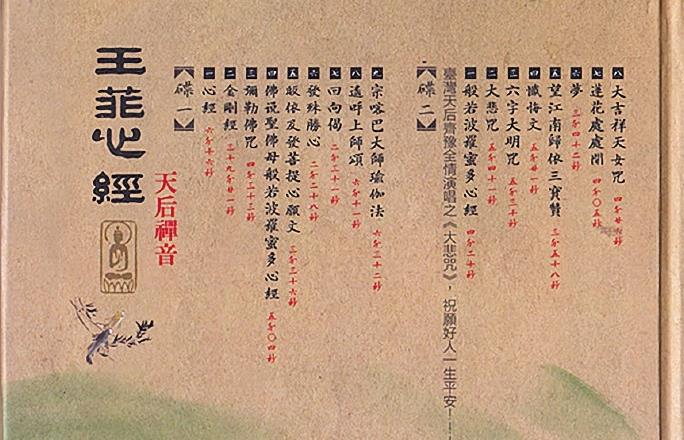 王菲心經
天后禪音
碟一
一 心經 六分十六秒
二 金剛經 三十九分廿一秒
三 彌勒佛咒 四分三十三秒
四 佛说聖佛母般若波羅蜜多心經 五分〇四秒
五 皈依及發菩提心願文 三分三十六秒
六 發殊勝心 二分二十八秒
七 回向偈 二分三十一秒
八 遥呼上師頌 六分十一秒
九 宗喀巴大師瑜伽法 六分三十二秒
碟二
臺灣天后齊豫全情演唱之《大悲咒》，祝願好人一生平安！
一 般若波羅蜜多心經 四分二十秒
二 大悲咒 五分四十一秒
三 六字大明咒 五分三十秒
四 懺悔文 五分廿一秒
五 望江南歸依三寶贊 三分五十八秒
六 夢 三分四十二秒
七 蓮花處處開 四分〇五秒
八 大吉祥天女咒 四分廿六秒